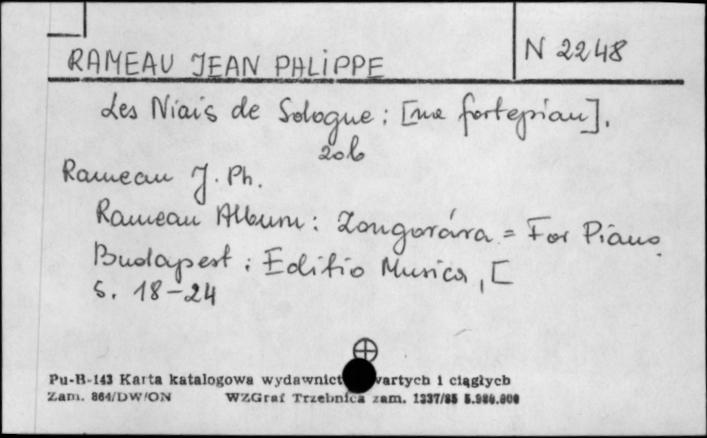 RAMEAU JEAN PHLIPPE
N 2248
Les Niais de Sologne : [na fortepian].
zob
Rameau J. Ph.
Rameau Album : Zongorára = For Piano.
Budapest : Editio Musica, [
s. 18-24
Pu-B-143 Karta katalogowa wydawnict wartych i ciągłych
Zam. 864/DW/ON WZGraf Trzebnica zam. 1337/85 5.980.000